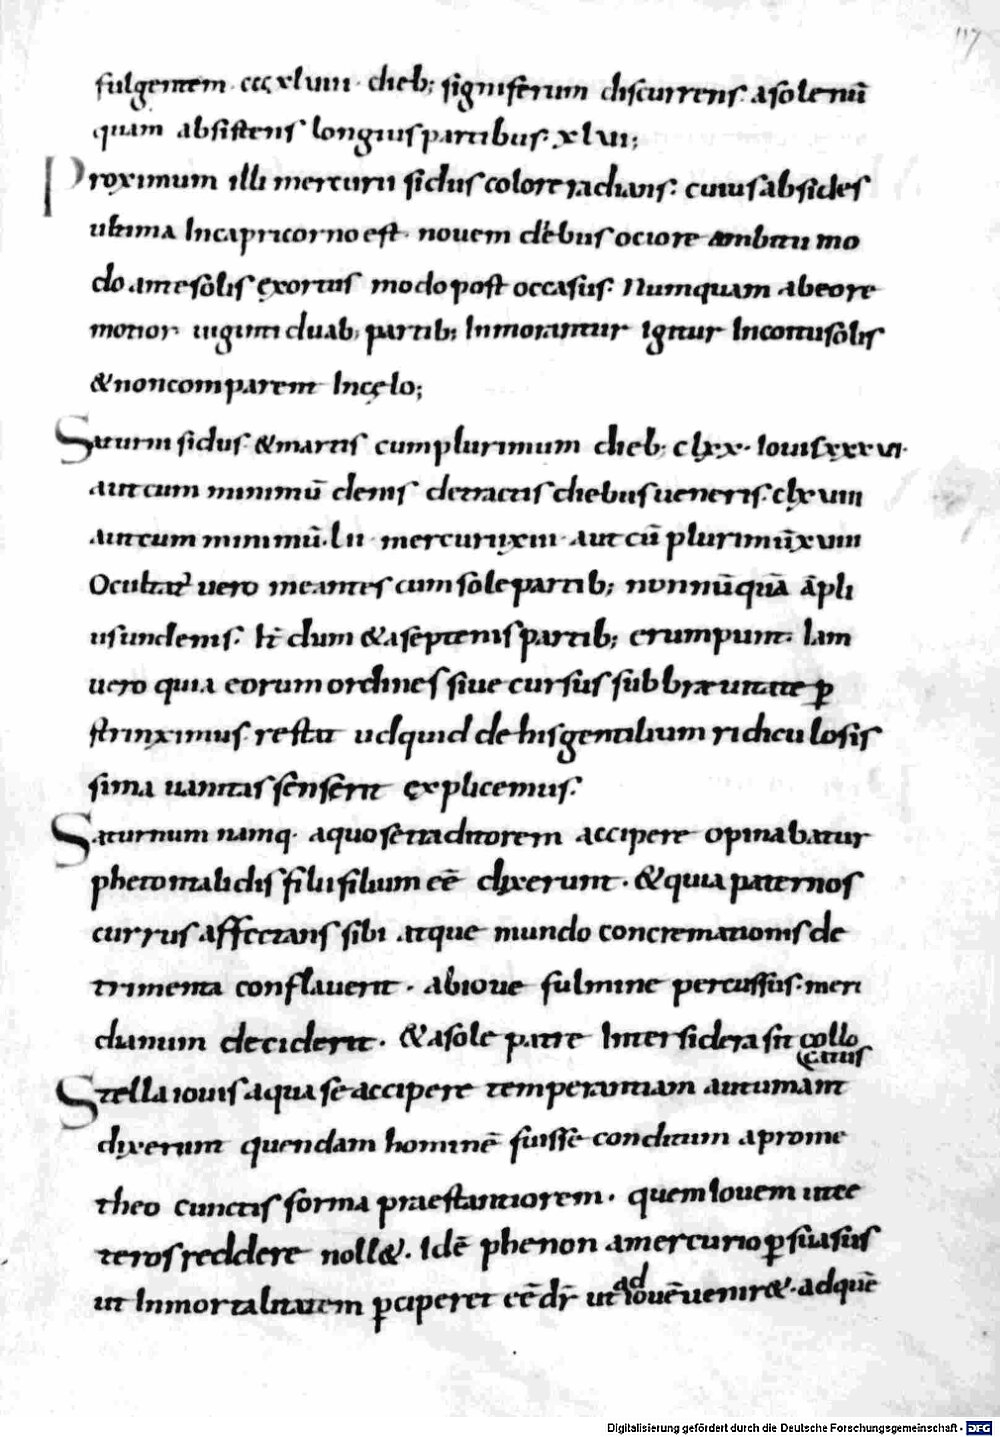 117
fulgentem · cccxlviii · dieb; signiferum discurrens · a sole nū
quam absistens longius partibus · xlvi;
Proximum illi mercurii sidus colore radians · cuius absides
ultima In capricorno est · nouem diebus ociore ambitu mo
do ante solis exortus modo post occasus · Numquam ab eo re
motior uiginti duab; partib; Inmorantur igitur In coitu solis
& non comparent In cęlo;
Saturni sidus · & martis cum plurimum dieb; clxx · Iouis xxxvi·
aut cum minimū denis detractis diebus ueneris · clxviiii
aut cum minimū · lii · mercurii xiii · aut cū plurimū xviii
Occultat᷑ uero meantes cum sole partib; nonnūquā āpli
us undenis · Int̄dum & a septenis partib; erumpunt · Iam
uero quia eorum ordines siue cursus sub breuitate ꝑ
strinximus · restat ud quid de his gentilium ridiculosis
sima uanitas senserit explicemus ·
Saturnum namq· a quo se traditorem accipere opinabatur
phetontali dis filii filium eē dixerunt · & quia paternos
currus affectans sibi atque mundo concremationis de
trimenta conflauerit · ab ioue fulmine percussus · in eri
danum deciderit · & a sole patre Inter sidera sit collo
catus
Stella iouis a qua se accipere temperantiam autumant
dixerunt quendam hominē fuisse conditum a prome
theo cunctis forma praestantiorem · quem Iouem in ce
teros reddere noll& · Idē phenon a mercurio ꝑsuasus
ut Inmortalitatem ꝑciperet eē dr̄ ut ad iouē uenir& · ad quē
Digitalisierung gefördert durch die Deutsche Forschungsgemeinschaft - DFG